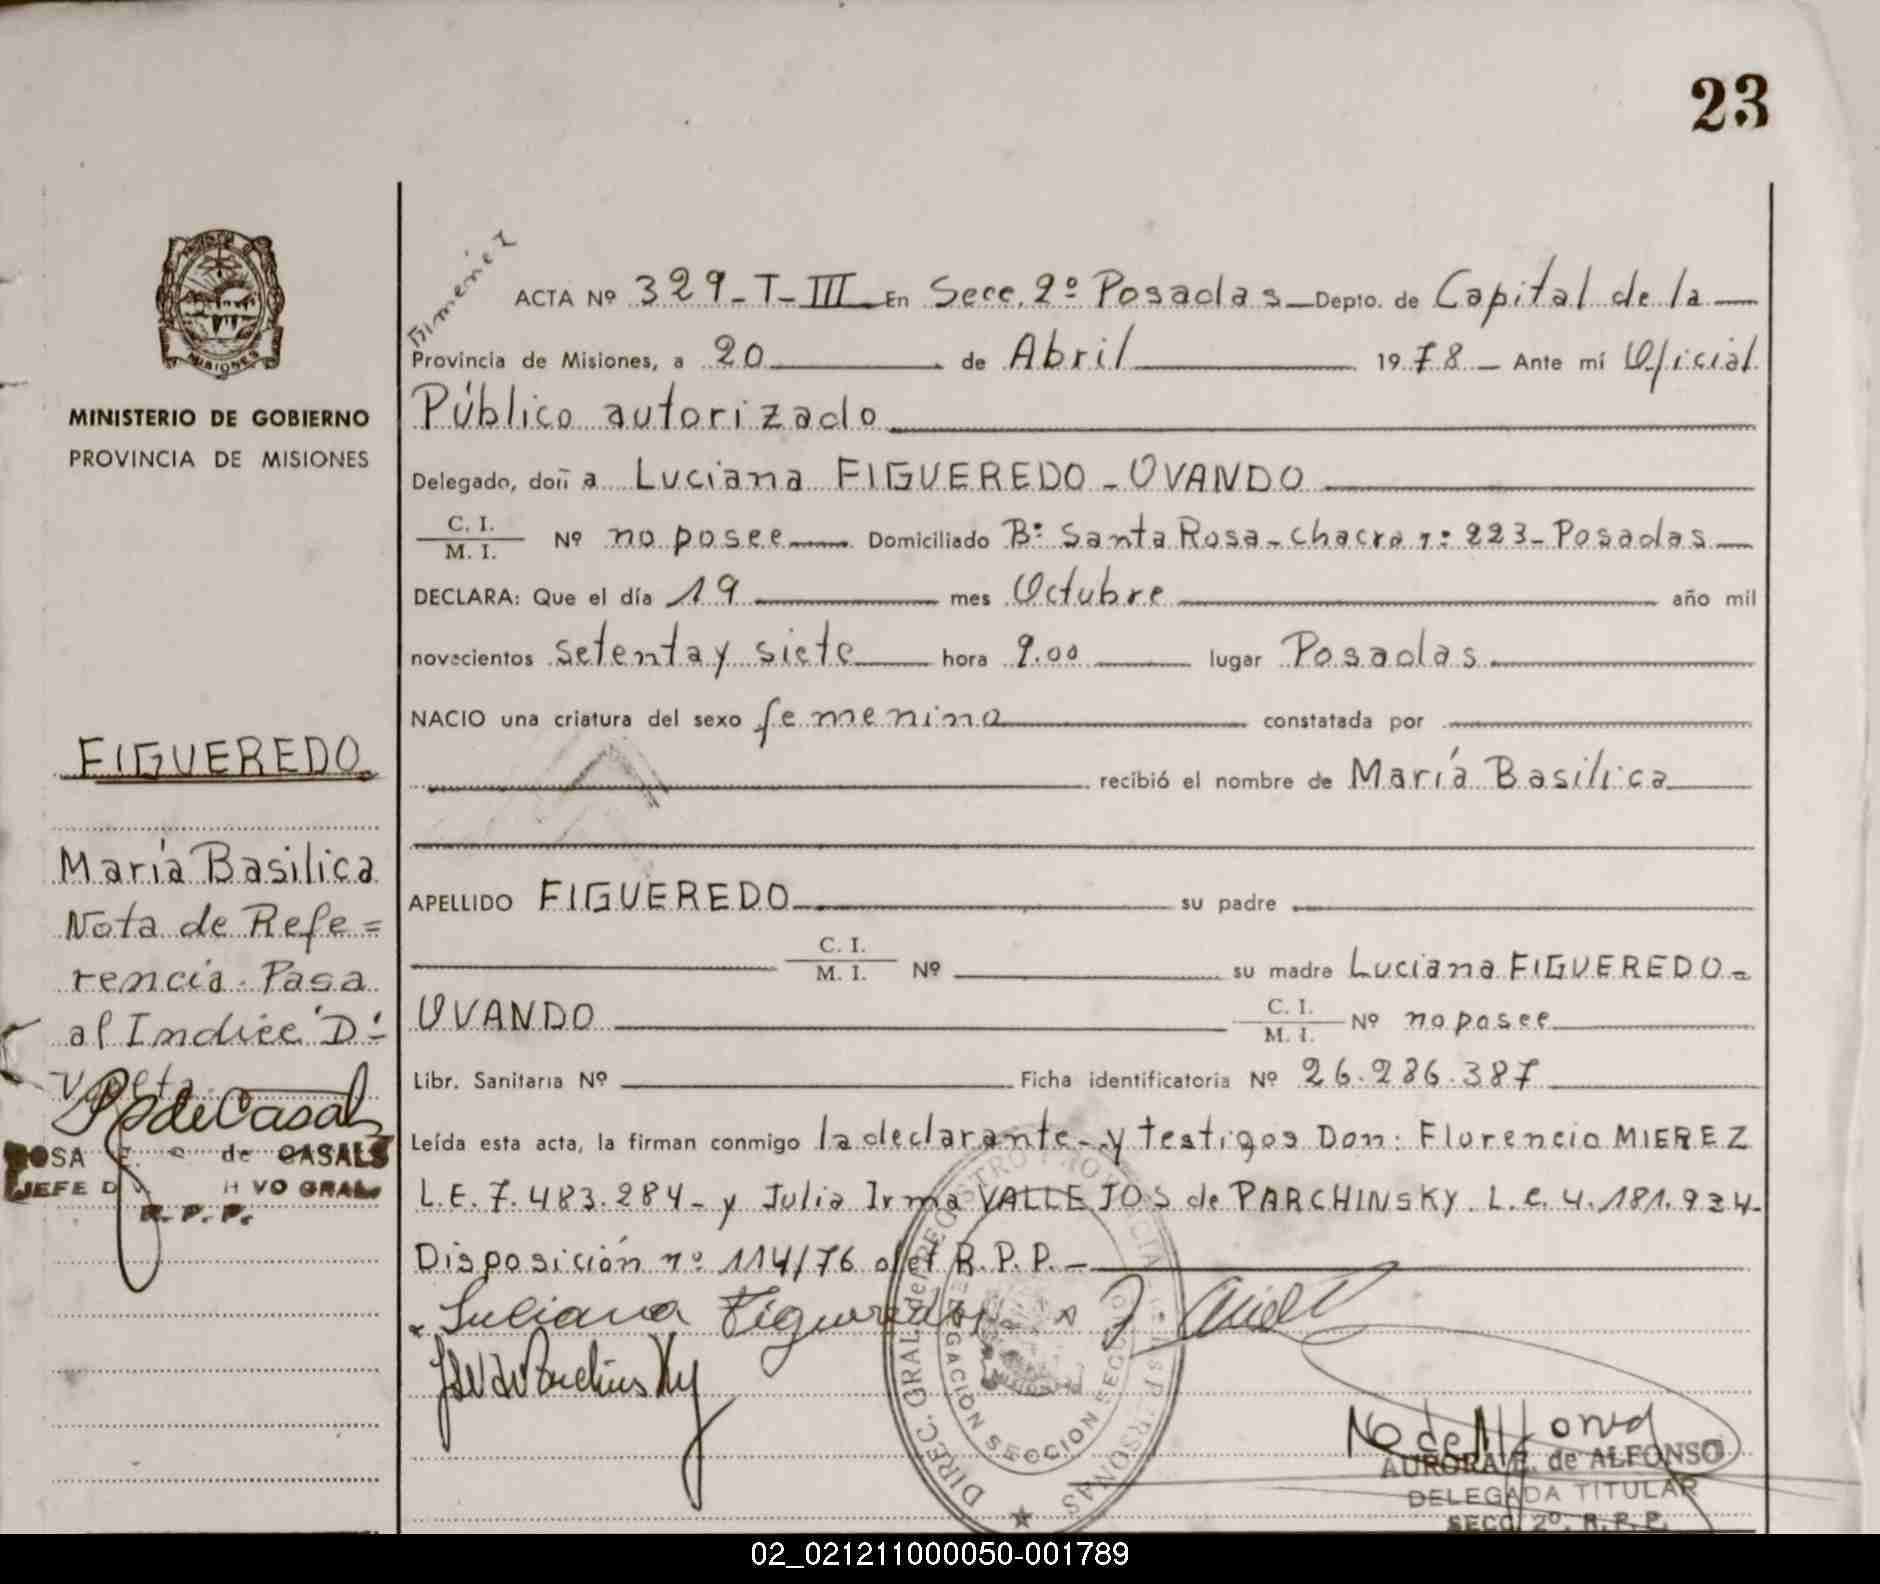 23
MISIONES
MINISTERIO DE GOBIERNO
PROVINCIA DE MISIONES
FIGUEREDO
María Basilica
Nota de Refe=
rencia. Pasa
al Indice "D"-
Vuelta.
RosdeCasals
ROSA E. de CASALS
JEFE D VO GRAL.
R. P. P.
Gimenez
ACTA Nº 329-T-III En Secc. 2º Posadas Depto. de Capital de la
Provincia de Misiones, a 20 de Abril 1978 Ante mí Oficial
Público autorizado
Delegado, doña Luciana FIGUEREDO - OVANDO
C. I.
M. I. Nº no posee Domiciliado Bº Santa Rosa - chacra nº 223 - Posadas
DECLARA: Que el día 19 mes Octubre año mil
novecientos setenta y siete hora 9.00 lugar Posadas
NACIO una criatura del sexo femenino constatada por
recibió el nombre de María Basilica
APELLIDO FIGUEREDO su padre
C. I.
M. I. Nº su madre Luciana FIGUEREDO-
OVANDO C. I.
M. I. Nº no posee
Libr. Sanitaria Nº Ficha identificatoria Nº 26.286.387
Leída esta acta, la firman conmigo la declarante - y testigos Don: Florencio MIEREZ
L.E. 7.483.284 - y Julia Irma VALLEJOS de PARCHINSKY. L.C. 4.181.924.
Disposición nº 114/76 del R.P.P. -
Luliana Figueredo
DIREC. GRAL. de REGISTRO PROVINCIAL de las PERSONAS
DELEGACION SECCION SEGUNDA
MISIONES
AURORA E. de ALFONSO
DELEGADA TITULAR
SECC. 2º. R. P. P.
02_021211000050-001789